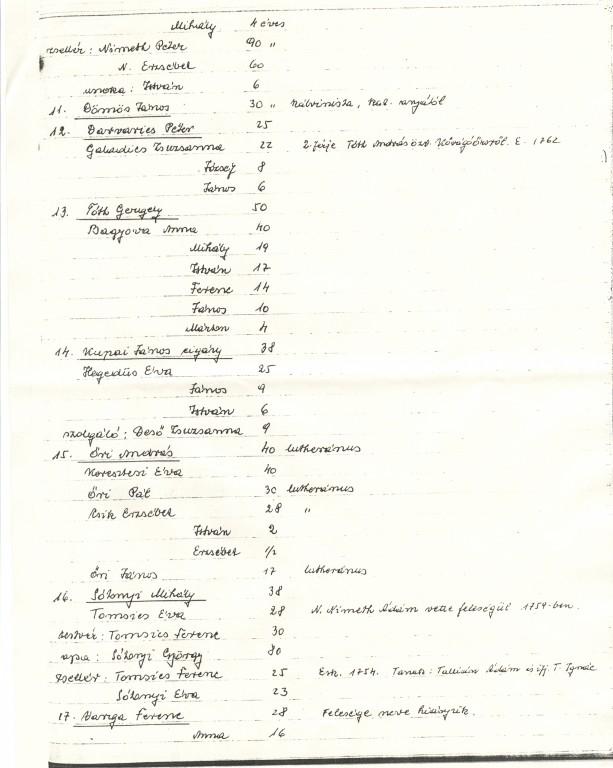 Mihály 4 éves
zsellér: Németh Péter 90 "
N. Erzsébet 60
unoka: István 6
11. Dömös János 30 " kálvinista, kat. anyától
12. Darvarics Péter 25
Gabadics Zsuzsanna 22 2. férje Tóth András özv. Kővágóörsről. E. 1762
József 8
János 6
13. Tóth Gergely 50
Bagyova Anna 40
Mihály 19
István 17
Ferenc 14
János 10
Márton 4
14. Kupai János cigány 38
Hegedűs Éva 25
János 9
István 6
szolgáló: Deső Zsuzsanna 9
15. Őri András 40 lutheránus
Keresztesi Éva 40
Őri Pál 30 lutheránus
Csik Erzsébet 28 "
István 2
Erzsébet 1/2
Őri János 17 lutheránus
16. Sótonyi Mihály 38
Tomsics Éva 28 N. Németh Ádám vette feleségül 1759-ben.
testvér: Tomsics Ferenc 30
apja: Sótonyi György 80
zsellér: Tomsics Ferenc 25 Esk. 1754. Tanuk: Tallián Ádám és ifj. T. Ignác
Sótonyi Éva 23
17. Varga Ferenc 28 Felesége neve hiányzik.
Anna 16